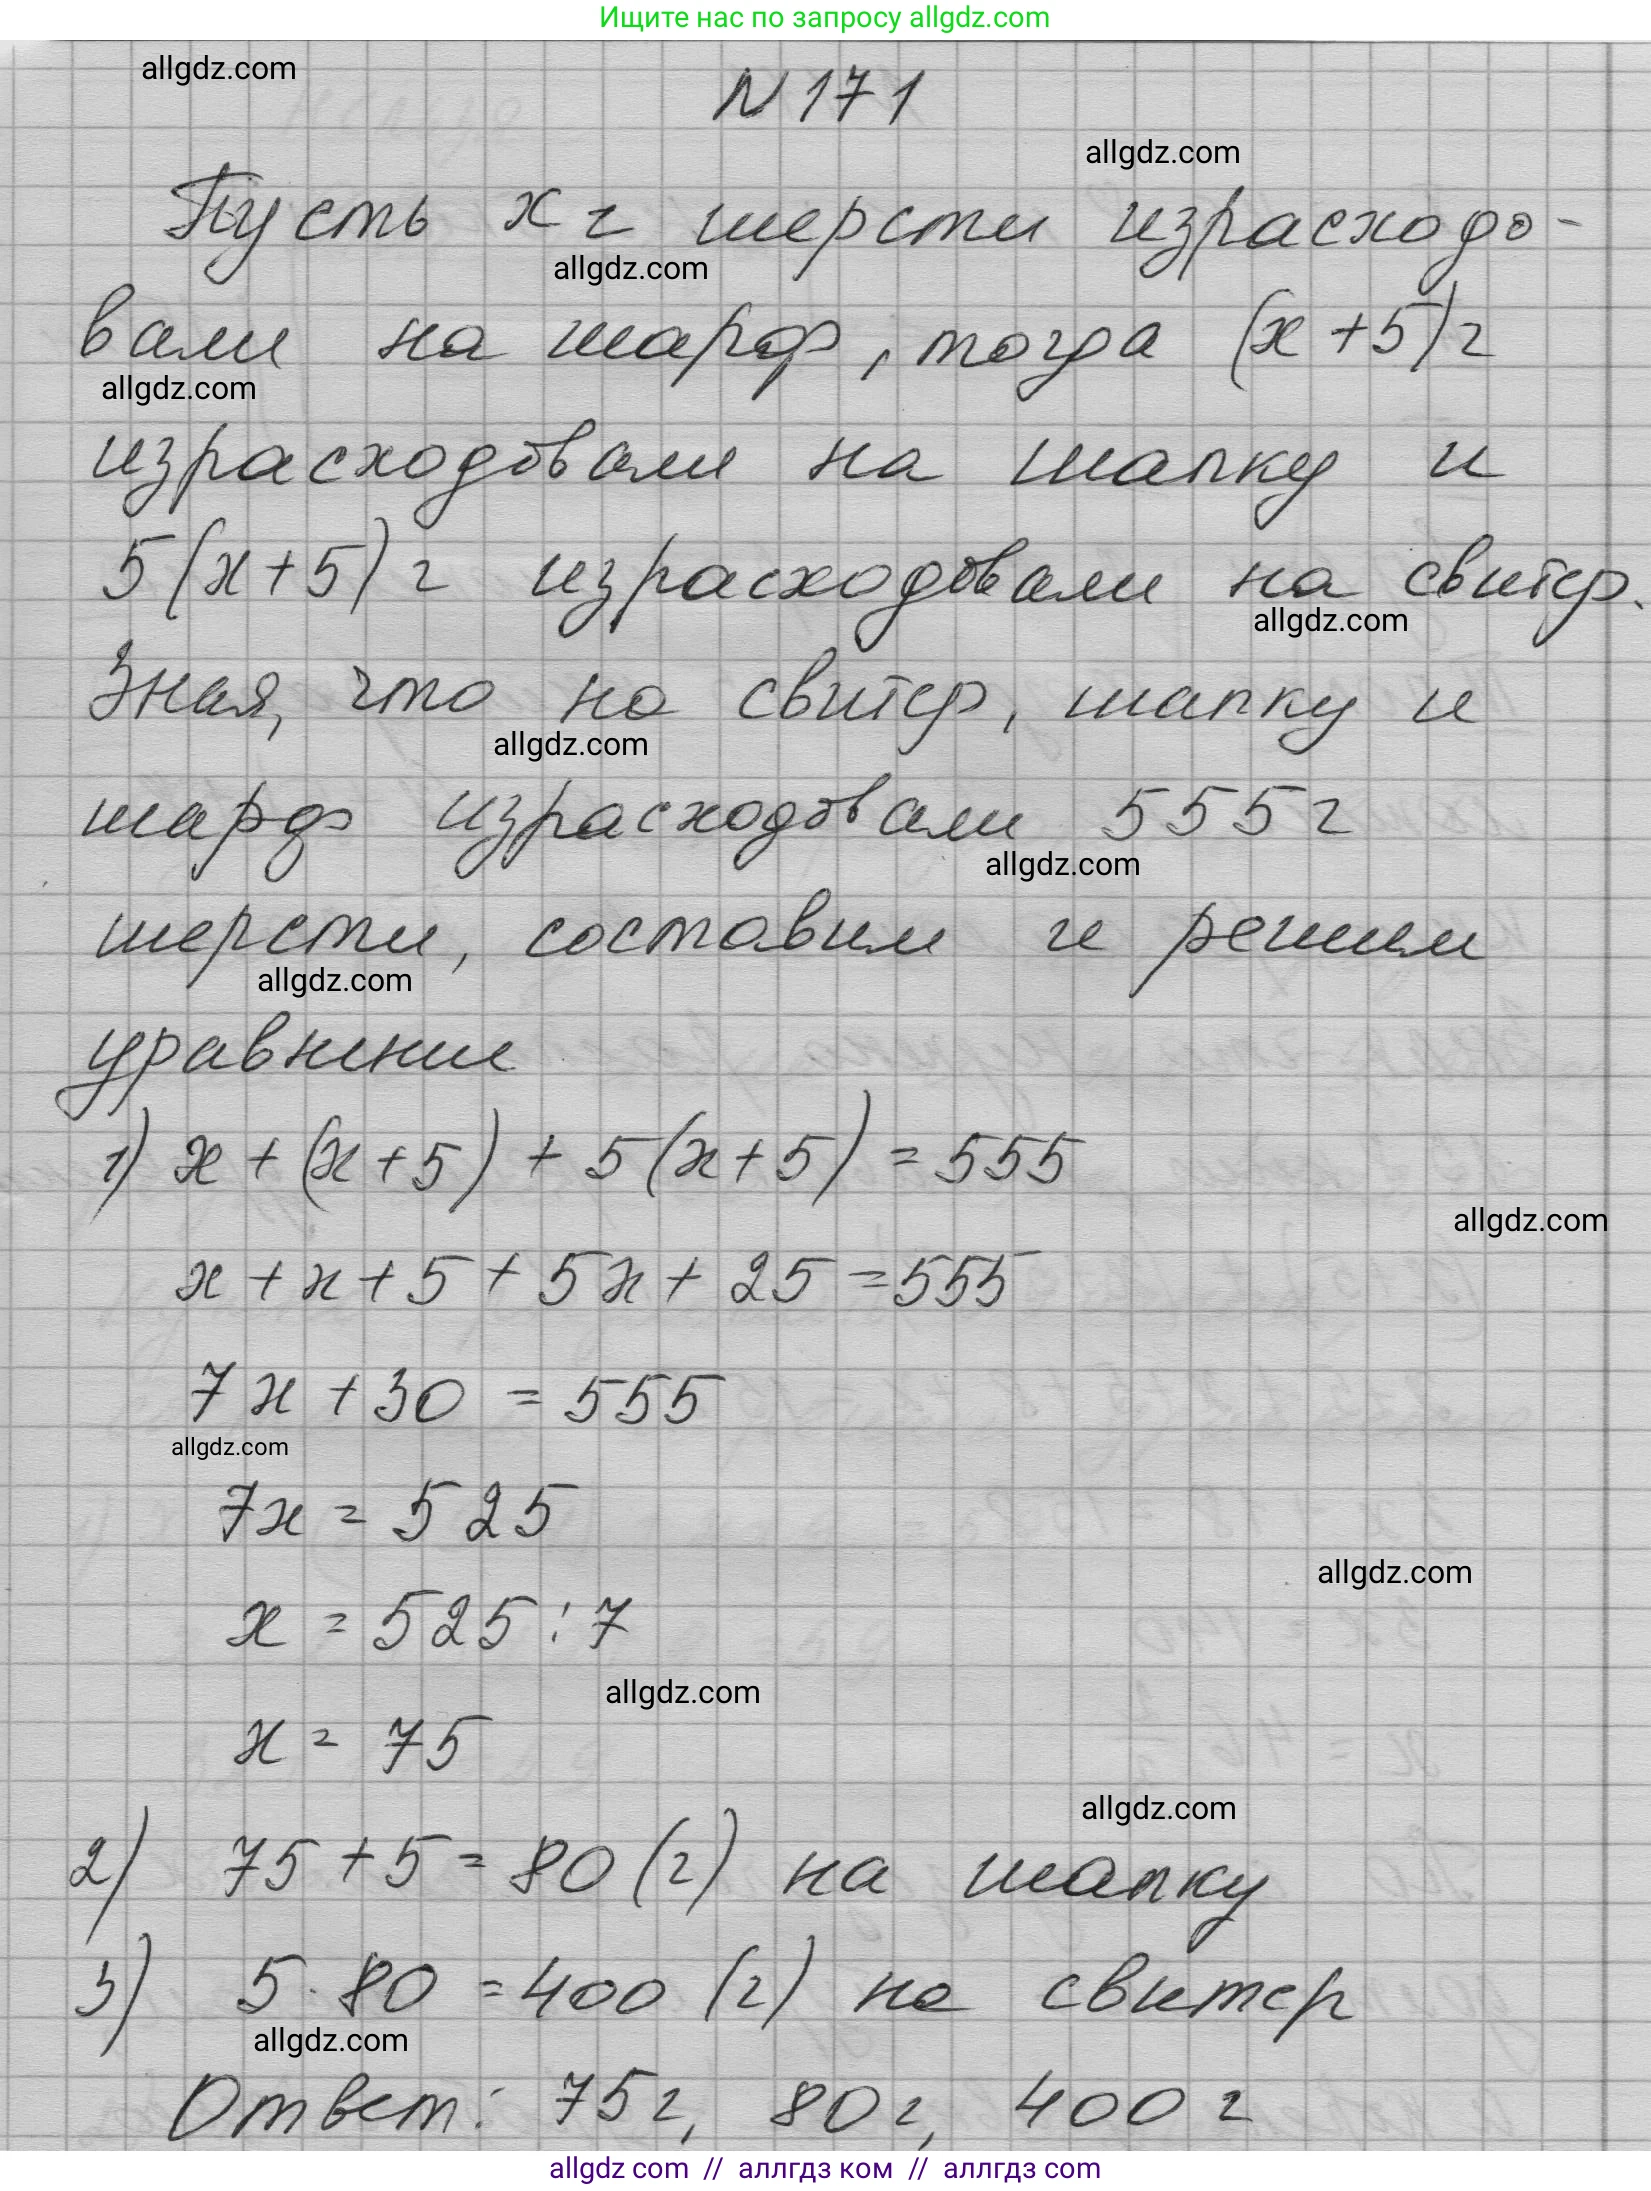 Ищите нас по запросу allgdz.com
allgdz.com
N 171
allgdz.com
Пусть x г шерсти израсходо-
allgdz.com
вали на шарф, тогда (x+5) г
allgdz.com
израсходовали на шапку и
5(x+5) г израсходовали на свитер.
allgdz.com
Зная, что на свитер, шапку и
allgdz.com
шарф израсходовали 555 г
allgdz.com
шерсти, составим и решим
allgdz.com
уравнение
1) x + (x+5) + 5(x+5) = 555
allgdz.com
x + x + 5 + 5x + 25 = 555
7x + 30 = 555
allgdz.com
7x = 525
allgdz.com
x = 525 : 7
allgdz.com
x = 75
allgdz.com
2) 75 + 5 = 80 (г) на шапку
3) 5 · 80 = 400 (г) на свитер
allgdz.com
Ответ: 75 г, 80 г, 400 г
allgdz com // аллгдз ком // аллгдз com